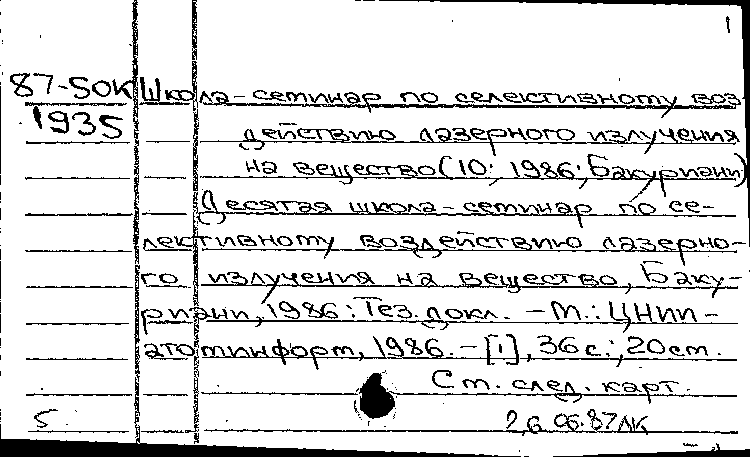 1
87-5ОК Школа-семинар по селективному воз-
1935 действию лазерного излучения
на вещество(10; 1986; Бакуриани)
Десятая школа-семинар по се-
лективному воздействию лазерно-
го излучения на вещество, Баку-
риани, 1986: Тез. докл. - М.: ЦНИИ-
атоминформ, 1986. - [1], 36 с.; 20 см.
См. след. карт.
5 26.06.87ЛК